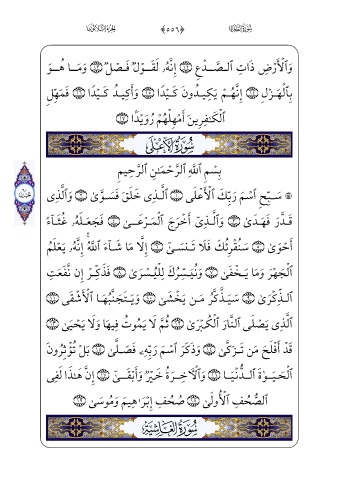 سُورَةُ الطَّارِقِ ﴿٥٥٦﴾ الجزء الثلاثون
وَٱلْأَرْضِ ذَاتِ ٱلصَّدْعِ ۝ إِنَّهُۥ لَقَوْلٌ فَصْلٌ ۝ وَمَا هُوَ
بِٱلْهَزْلِ ۝ إِنَّهُمْ يَكِيدُونَ كَيْدًا ۝ وَأَكِيدُ كَيْدًا ۝ فَمَهِّلِ
ٱلْكَـٰفِرِينَ أَمْهِلْهُمْ رُوَيْدًۢا ۝
سُورَةُ الأَعْلَى
بِسْمِ ٱللَّهِ ٱلرَّحْمَـٰنِ ٱلرَّحِيمِ
۞ سَبِّحِ ٱسْمَ رَبِّكَ ٱلْأَعْلَى ۝ ٱلَّذِى خَلَقَ فَسَوَّىٰ ۝ وَٱلَّذِى
قَدَّرَ فَهَدَىٰ ۝ وَٱلَّذِىٓ أَخْرَجَ ٱلْمَرْعَىٰ ۝ فَجَعَلَهُۥ غُثَآءً
أَحْوَىٰ ۝ سَنُقْرِئُكَ فَلَا تَنسَىٰٓ ۝ إِلَّا مَا شَآءَ ٱللَّهُ ۚ إِنَّهُۥ يَعْلَمُ
ٱلْجَهْرَ وَمَا يَخْفَىٰ ۝ وَنُيَسِّرُكَ لِلْيُسْرَىٰ ۝ فَذَكِّرْ إِن نَّفَعَتِ
ٱلذِّكْرَىٰ ۝ سَيَذَّكَّرُ مَن يَخْشَىٰ ۝ وَيَتَجَنَّبُهَا ٱلْأَشْقَى ۝
ٱلَّذِى يَصْلَى ٱلنَّارَ ٱلْكُبْرَىٰ ۝ ثُمَّ لَا يَمُوتُ فِيهَا وَلَا يَحْيَىٰ ۝
قَدْ أَفْلَحَ مَن تَزَكَّىٰ ۝ وَذَكَرَ ٱسْمَ رَبِّهِۦ فَصَلَّىٰ ۝ بَلْ تُؤْثِرُونَ
ٱلْحَيَوٰةَ ٱلدُّنْيَا ۝ وَٱلْآخِرَةُ خَيْرٌ وَأَبْقَىٰٓ ۝ إِنَّ هَـٰذَا لَفِى
ٱلصُّحُفِ ٱلْأُولَىٰ ۝ صُحُفِ إِبْرَٰهِيمَ وَمُوسَىٰ ۝
سُورَةُ الغَاشِيَةِ